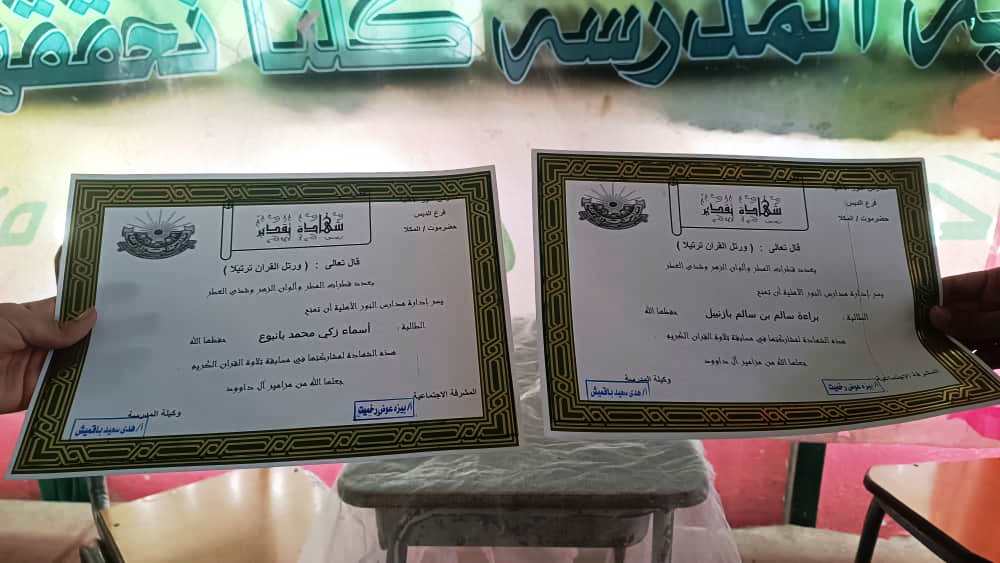 المدرسه كلنا نحقق
فرع الديس
حضرموت / المكلا
شهادة تقدير
قال تعالى : ( ورتل القران ترتيلا )
بعدد قطرات المطر وألوان الزهر وشذى العطر
يسر إدارة مدارس النور الأهلية أن تمنح
الطالبة : أسماء زكي محمد بانبوع حفظها الله
هذه الشهادة لمشاركتها في مسابقة تلاوة القران الكريم
جعلها الله من مزامير آل داوود
المشرفة الاجتماعية
وكيلة المدرسة
أ/ بيزه عوض رخميت
أ/ هدى سعيد باقميش
فرع الديس
حضرموت / المكلا
شهادة تقدير
قال تعالى : ( ورتل القران ترتيلا )
بعدد قطرات المطر وألوان الزهر وشذى العطر
يسر إدارة مدارس النور الأهلية أن تمنح
الطالبة : براءة سالم بن سالم بازنبيل حفظها الله
هذه الشهادة لمشاركتها في مسابقة تلاوة القران الكريم .
جعلها الله من مزامير آل داوود
المشرفة الاجتماعية
وكيلة المدرسة
أ/ بيزه عوض رخميت
أ/ هدى سعيد باقميش